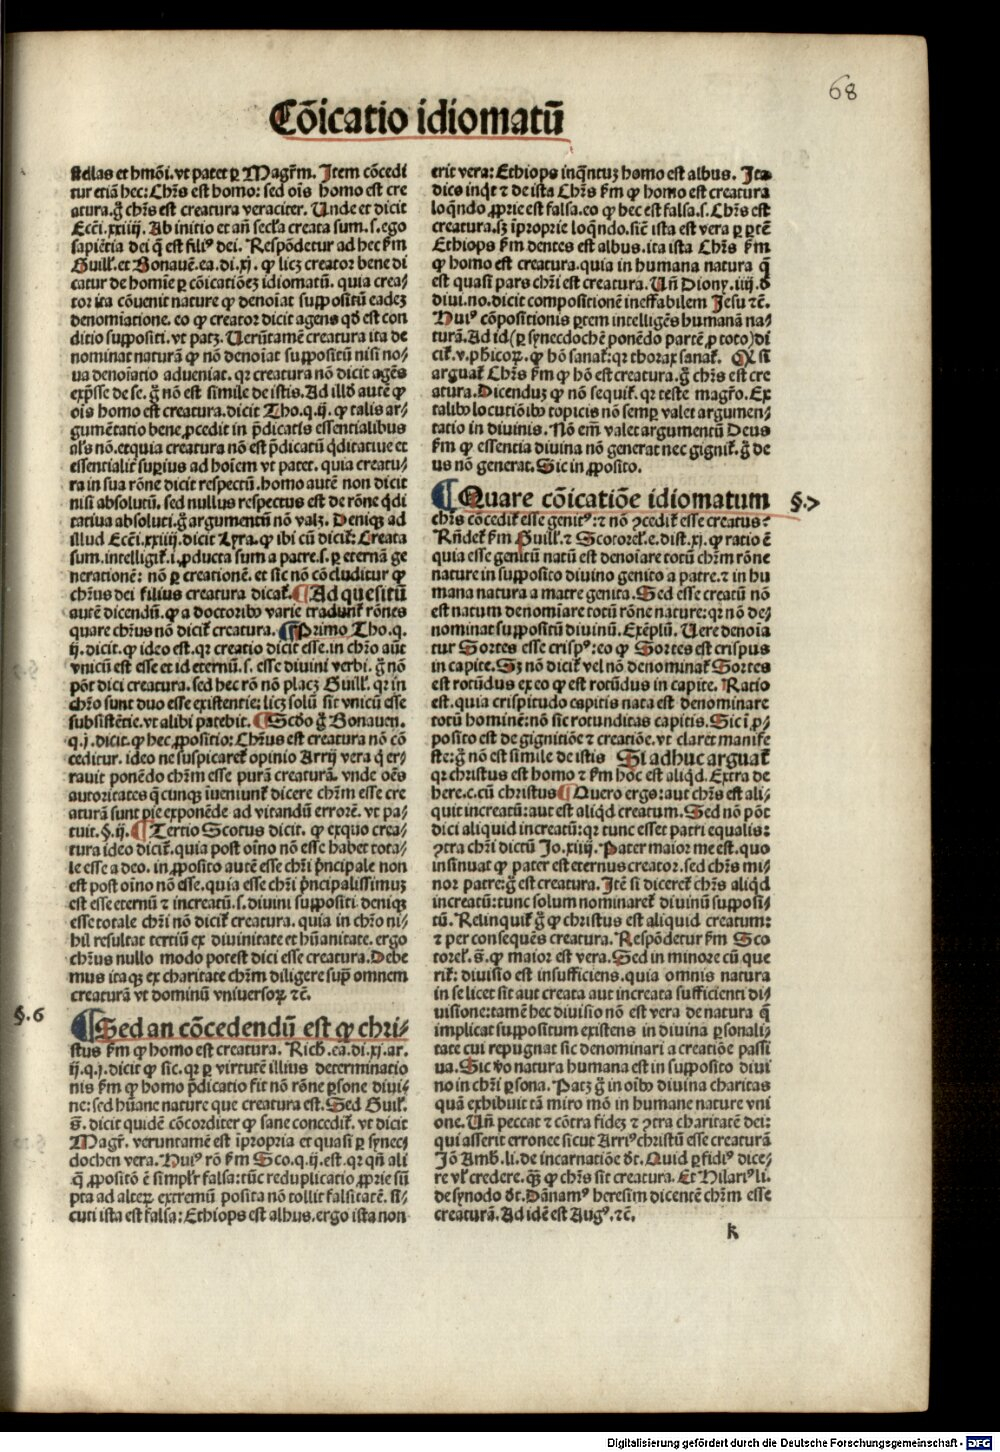 68
Cōicatio idiomatū
stellas et hmōi. vt patet ꝑ Magrm̄. Item cōcedi
tur etiā hec: Chr̄s est homo: sed oīs homo est cre
atura. g̊ chr̄s est creatura veraciter. Unde et dicit
Ecci. xxiiij. Ab initio et an̄ secl̄a creata sum. s. ego
sapiētia dei q̄ est filiꝰ dei. Respōdetur ad hec fm̄
Guill. et Bonauē. ea. di. xj. ꝙ licꝫ creator bene di
catur de homīe ꝑ cōicatiōeꝫ idiomatū. quia crea⸗
tor ita cōuenit nature ꝙ denoīat suppositū eadeꝫ
denomīatione. eo ꝙ creator dicit agens qd̄ est con
ditio suppositi. vt patꝫ. Uerūtamē creatura ita de
nominat naturā ꝙ nō denoīat suppositū nisi no⸗
ua denoīatio adueniat. qꝛ creatura nō dicit agēs
exp̄sse de se. g̊ nō est simile de istis. Ad illd̄ autē ꝙ
oīs homo est creatura. dicit Tho. q. ij. ꝙ talis ar⸗
gumētatio bene ꝓcedit in p̄dicatis essentialibus
al̄s nō. et quia creatura nō est p̄dicatū qd̄itatiue et
essentialit̄ superius ad hoīem vt patet. quia creatu⸗
ra in sua rōne dicit respectū. homo autē non dicit
nisi absolutū. sed nullus respectus est de rōne qd̄i
tatiua absoluti. g̊ argumentū nō valꝫ. Deniqꝫ ad
illud Ecci. xxiiij. dicit Lyra. ꝙ ibi cū dicit̄: Creata
sum. intelligit̄. i. ꝓducta sum a patre. s. ꝑ eternā ge
nerationē: nō ꝑ creationē. et sic nō cōcluditur ꝙ
chr̄us dei filius creatura dicat̄. ¶ Ad quesitū
autē dicendū. ꝙ a doctoribꝰ varie tradunt̄ rōnes
quare chr̄us nō dicit̄ creatura. ¶ Primo Tho. q.
ij. dicit. ꝙ ideo est. qꝛ creatio dicit esse. in chr̄o aūt
vnicū est esse et id eternū. s. esse diuini verbi. g̊ nō
pōt dici creatura. sed hec rō nō placꝫ Guill. qꝛ in
chr̄o sunt duo esse existentie: licꝫ solū sit vnicū esse
subsistētie. vt alibi patebit. ¶ Scd̄o g̊ Bonauen.
q. j. dicit. ꝙ hec ꝓpositio: Chr̄us est creatura nō cō
ceditur. ideo ne suspicaret̄ opinio Arrij vera q̄ er⸗
rauit ponēdo chr̄m esse purā creaturā. vnde oēs
autoritates q̄cunqꝫ īueniunt̄ dicere chr̄m esse cre
aturā sunt pie exponēde ad vitandū errorē. vt pa⸗
tuit. §. ij. ¶ Tertio Scotus dicit. ꝙ exquo crea⸗
tura ideo dicit̄. quia post oīno nō esse habet tota⸗
le esse a deo. in ꝓposito autē esse chr̄i p̄ncipale non
est post oīno nō esse. quia esse chr̄i p̄ncipalissimuꝫ
est esse eternū ⁊ increatū. s. diuini suppositi deniqꝫ
esse totale chr̄i nō dicit̄ creatura. quia in chr̄o ni⸗
hil resultat tertiū ex diuinitate et hūanitate. ergo
chr̄us nullo modo potest dici esse creatura. Debe
mus itaqꝫ ex charitate chr̄m diligere sup̄ omnem
creaturā vt dominū vniuersoꝝ ⁊c̄.
§. 6
¶ Sed an cōcedendū est ꝙ chri⸗
stus fm̄ ꝙ homo est creatura. Rich. ea. di. xj. ar.
ij. q. j. dicit ꝙ sic. qꝛ ꝑ virtutē illius determinatio
nis fm̄ ꝙ homo p̄dicatio fit nō rōne ꝑsone diui⸗
ne: sed hūane nature que creatura est. Sed Guil̄.
s̄. dicit quidē cōcorditer ꝙ sane concedit̄. vt dicit
Magr̄. veruntamē est īpropria et quasi ꝑ synec⸗
dochen vera. Huiꝰ rō fm̄ Sco. q. ij. est. qꝛ qn̄ ali
q̄ ꝓpositō ē simplr̄ falsa: tūc reduplicatio ꝓprie sū
pta ad alteꝝ extremū posita nō tollit falsitatē. si⸗
cuti ista est falsa: Ethiops est albus. ergo ista non
erit vera: Ethiops inqn̄tuꝫ homo est albus. Ita
dico inqt̄ ⁊ de ista Chr̄s fm̄ ꝙ homo est creatura
loqn̄do ꝓprie est falsa. eo ꝙ hec est falsa. s. Chr̄s est
creatura. sꝫ īproprie loqn̄do. sic̄ ista est vera ꝑ ꝑtē
Ethiops fm̄ dentes est albus. ita ista Chr̄s fm̄
ꝙ homo est creatura. quia in humana natura q̄
est quasi pars chr̄i est creatura. Un̄ Diony. iiij. d̄
diui. no. dicit compositionē ineffabilem Jesu ⁊c̄.
Huiꝰ cōpositionis ꝑtem intelligēs humanā na⸗
turā. Ad id (ꝑ synecdochē ponēdo partē ꝓ toto) di
cit̄. v. ph̄icoꝝ. ꝙ hō sanat̄: qꝛ thorax sanat̄. Qꝛ si
arguat̄ Chr̄s fm̄ ꝙ hō est creatura. g̊ chr̄s est cre
atura. Dicenduꝫ ꝙ nō sequit̄. qꝛ teste magr̄o. Ex
talibꝰ locutiōibꝰ topicis nō semꝑ valet argumen⸗
tatio in diuinis. Nō em̄ valet argumentū Deus
fm̄ ꝙ essentia diuina nō generat nec gignit̄. g̊ de
us nō generat. Sic in ꝓposito.
¶ Quare cōicatiōe idiomatum §. 7
chr̄s cōcedit̄ esse genitꝰ: ⁊ nō ꝯcedit̄ esse creatus?
Rn̄det̄ fm̄ Guill. ⁊ Scotorel̄. e. dist. xj. ꝙ ratio ē
quia esse genitū natū est denoīare totū chr̄m rōne
nature in supposito diuino genito a patre. ⁊ in hu
mana natura a matre genita. Sed esse creatū nō
est natum denomīare totū rōne nature: qꝛ nō de⸗
nominat suppositū diuinū. Exēplū. Uere denoīa
tur Sortes esse crispꝰ: eo ꝙ Sortes est crispus
in capite. Sꝫ nō dicit̄ vel nō denominat̄ Sortes
est rotūdus ex eo ꝙ est rotūdus in capite. Ratio
est. quia crispitudo capitis nata est denominare
totū hominē: nō sic rotunditas capitis. Sic ī ꝓ⸗
posito est de gignitiōe ⁊ creatiōe. vt claret manife
ste: g̊ nō est simile de istis Si adhuc arguat̄
qꝛ christus est homo ⁊ fm̄ hoc est aliqd̄. Extra de
here. c. cū christus ¶ Quero ergo: aut chr̄s est ali⸗
quit increatū: aut est aliqd̄ creatum. Sed nō pōt
dici aliquid increatū: qꝛ tunc esset patri equalis:
ꝯtra chr̄i dictū Jo. xiiij. Pater maior me est. quo
insinuat ꝙ pater est eternus creator. sed chr̄s mi⸗
nor patre: g̊ est creatura. Itē si diceret̄ chr̄s aliqd̄
increatū: tunc solum nominaret̄ diuinū supposi⸗
tū. Relinquit̄ g̊ ꝙ christus est aliquid creatum:
⁊ per consequēs creatura. Respōdetur fm̄ Sco
torel̄. s̄. ꝙ maior est vera. Sed in minore cū que
rit̄: diuisio est insufficiens. quia omnis natura
in se licet sit aut creata aut increata sufficienti di⸗
uisione: tamē hec diuisio nō est vera de natura q̄
implicat suppositum existens in diuina ꝑsonali⸗
tate cui repugnat sic denominari a creatiōe passi
ua. Sic v̄o natura humana est in supposito diui
no in chr̄i ꝑsona. Patꝫ g̊ in oībꝰ diuina charitas
quā exhibuit tā miro mō in humane nature vni
one. Un̄ peccat ⁊ cōtra fideꝫ ⁊ ꝯtra charitatē dei:
qui asserit erronee sicut Arriꝰ christū esse creaturā
Jō Amb. li. de incarnatiōe d̄t. Quid ꝑfidiꝰ dice⸗
re vl̄ credere. qꝫ̄ ꝙ chr̄s sit creatura. Et Hilariꝰ li.
de synodo d̄t. Dānamꝰ heresim dicentē chr̄m esse
creaturā. Ad idē est Augꝰ. ⁊c̄.
k
Digitalisierung gefördert durch die Deutsche Forschungsgemeinschaft - DFG